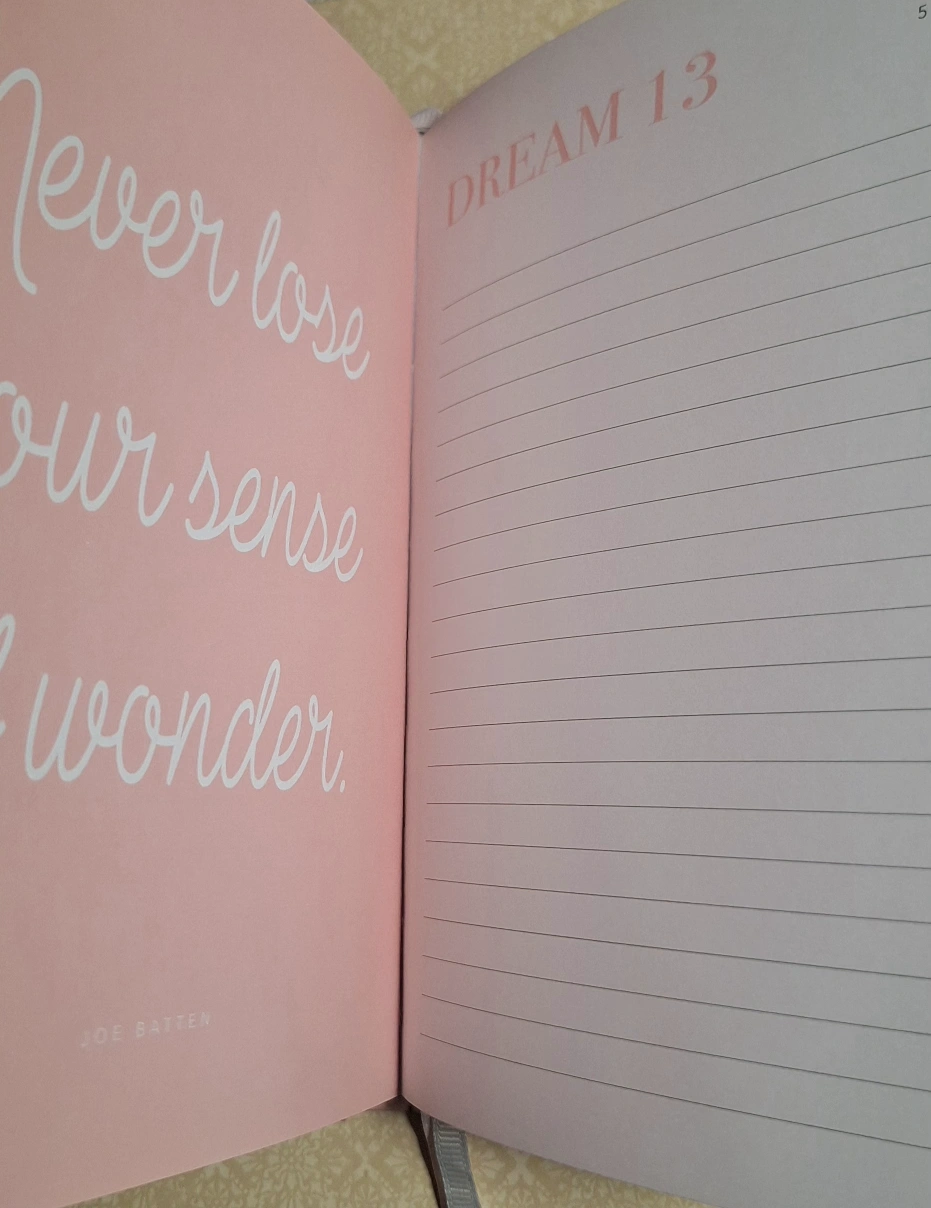 Never lose
our sense
wonder.
JOE BATTEN
5
DREAM 13